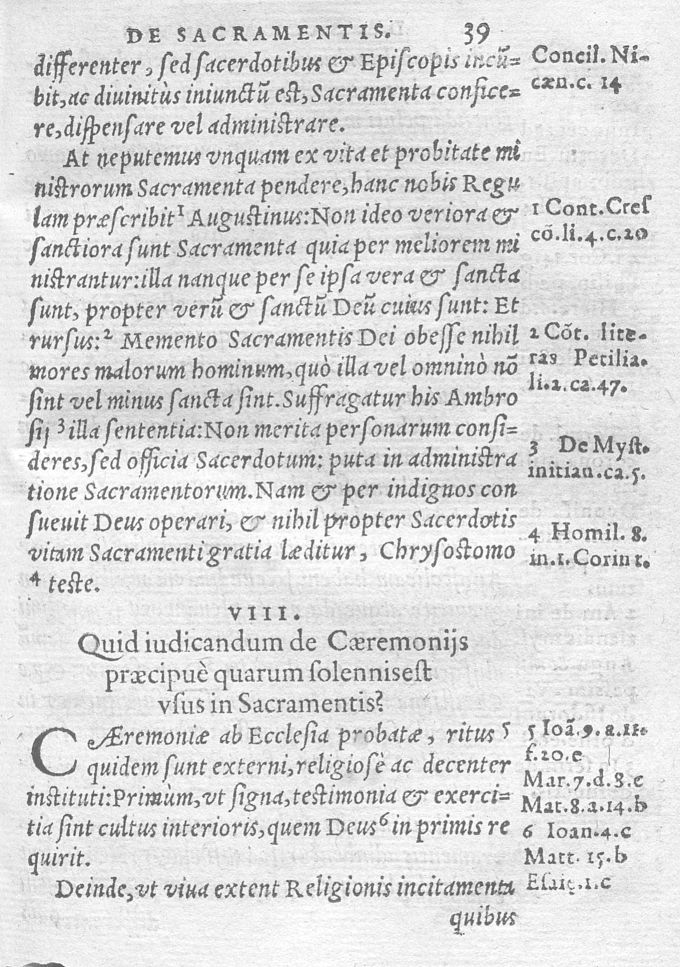 DE SACRAMENTIS. 39
differenter, sed sacerdotibus & Episcopis incũ=
bit, ac diuinitùs iniunctũ est, Sacramenta confice=
re, dispensare vel administrare.
At ne putemus vnquam ex vita et probitate mi
nistrorum Sacramenta pendere, hanc nobis Regu
lam præscribit¹ Augustinus: Non ideo veriora &
sanctiora sunt Sacramenta quia per meliorem mi
nistrantur: illa nanque per se ipsa vera & sancta
sunt, propter verũ & sanctũ Deũ cuius sunt: Et
rursus:² Memento Sacramentis Dei obesse nihil
mores malorum hominum, quò illa vel omninò nõ
sint vel minus sancta sint. Suffragatur his Ambro
sij ³ illa sententia: Non merita personarum consi=
deres, sed officia Sacerdotum: puta in administra
tione Sacramentorum. Nam & per indignos con
sueuit Deus operari, & nihil propter Sacerdotis
vitam Sacramenti gratia læditur, Chrysostomo
⁴ teste.
VIII.
Quid iudicandum de Cæremonijs
præcipuè quarum solennis est
vsus in Sacramentis?
CÆremoniæ ab Ecclesia probatæ, ritus ⁵
quidem sunt externi, religiosè ac decenter
instituti: Primùm, vt signa, testimonia & exerci=
tia sint cultus interioris, quem Deus⁶ in primis re
quirit.
Deinde, vt viua extent Religionis incitamenta
quibus
Concil. Ni-
cæn. c. 14
1 Cont. Cres
cõ. li. 4. c. 20
2 Cõt. lite-
ras Petilia.
li. 2. ca. 47.
3 De Myst.
initian. ca. 5.
4 Homil. 8.
in. 1. Corint.
5 Ioã. 9. a. 11.
f. 20. e
Mar. 7. d. 8. e
Mat. 8. a. 14. b
6 Ioan. 4. c
Matt. 15. b
Esaię. 1. c